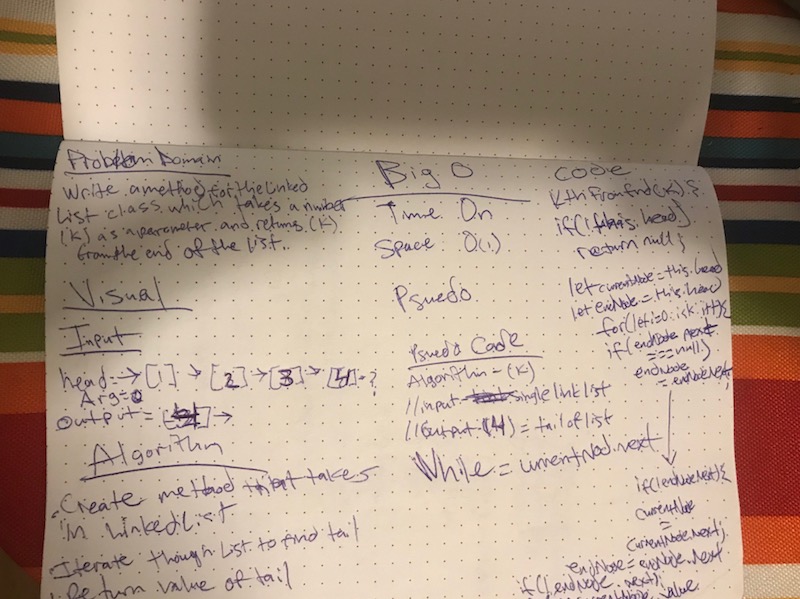 Problem Domain
Write a method for the linked
list class which takes a number
(k) as a parameter and returns (k)
from the end of the list.
Visual
Input
head = → [1] → [2] → [3] → [4] →
Arg = 0
output = →
Algorithm
- Create method that takes
in linkedlist
- Iterate though list to find tail
- Return value of tail
Big O
Time On
Space O(1)
Psuedo
Psuedo Code
Algorithm - (k)
// input - single link list
// Output (4) = tail of list
While = currentNod.next
Code
kthFromEnd(k) {
if(!this.head)
return null }
let currentNode = this.head
let endNode = this.head
for(let i=0; i<k; i++){
if(endNode.next
=== null)
endNode
= endNode.Next;
if(!endNode.Next){
currentNode
=
currentNode.next;
endNode = endNode.Next
if(!endNode.next);
value